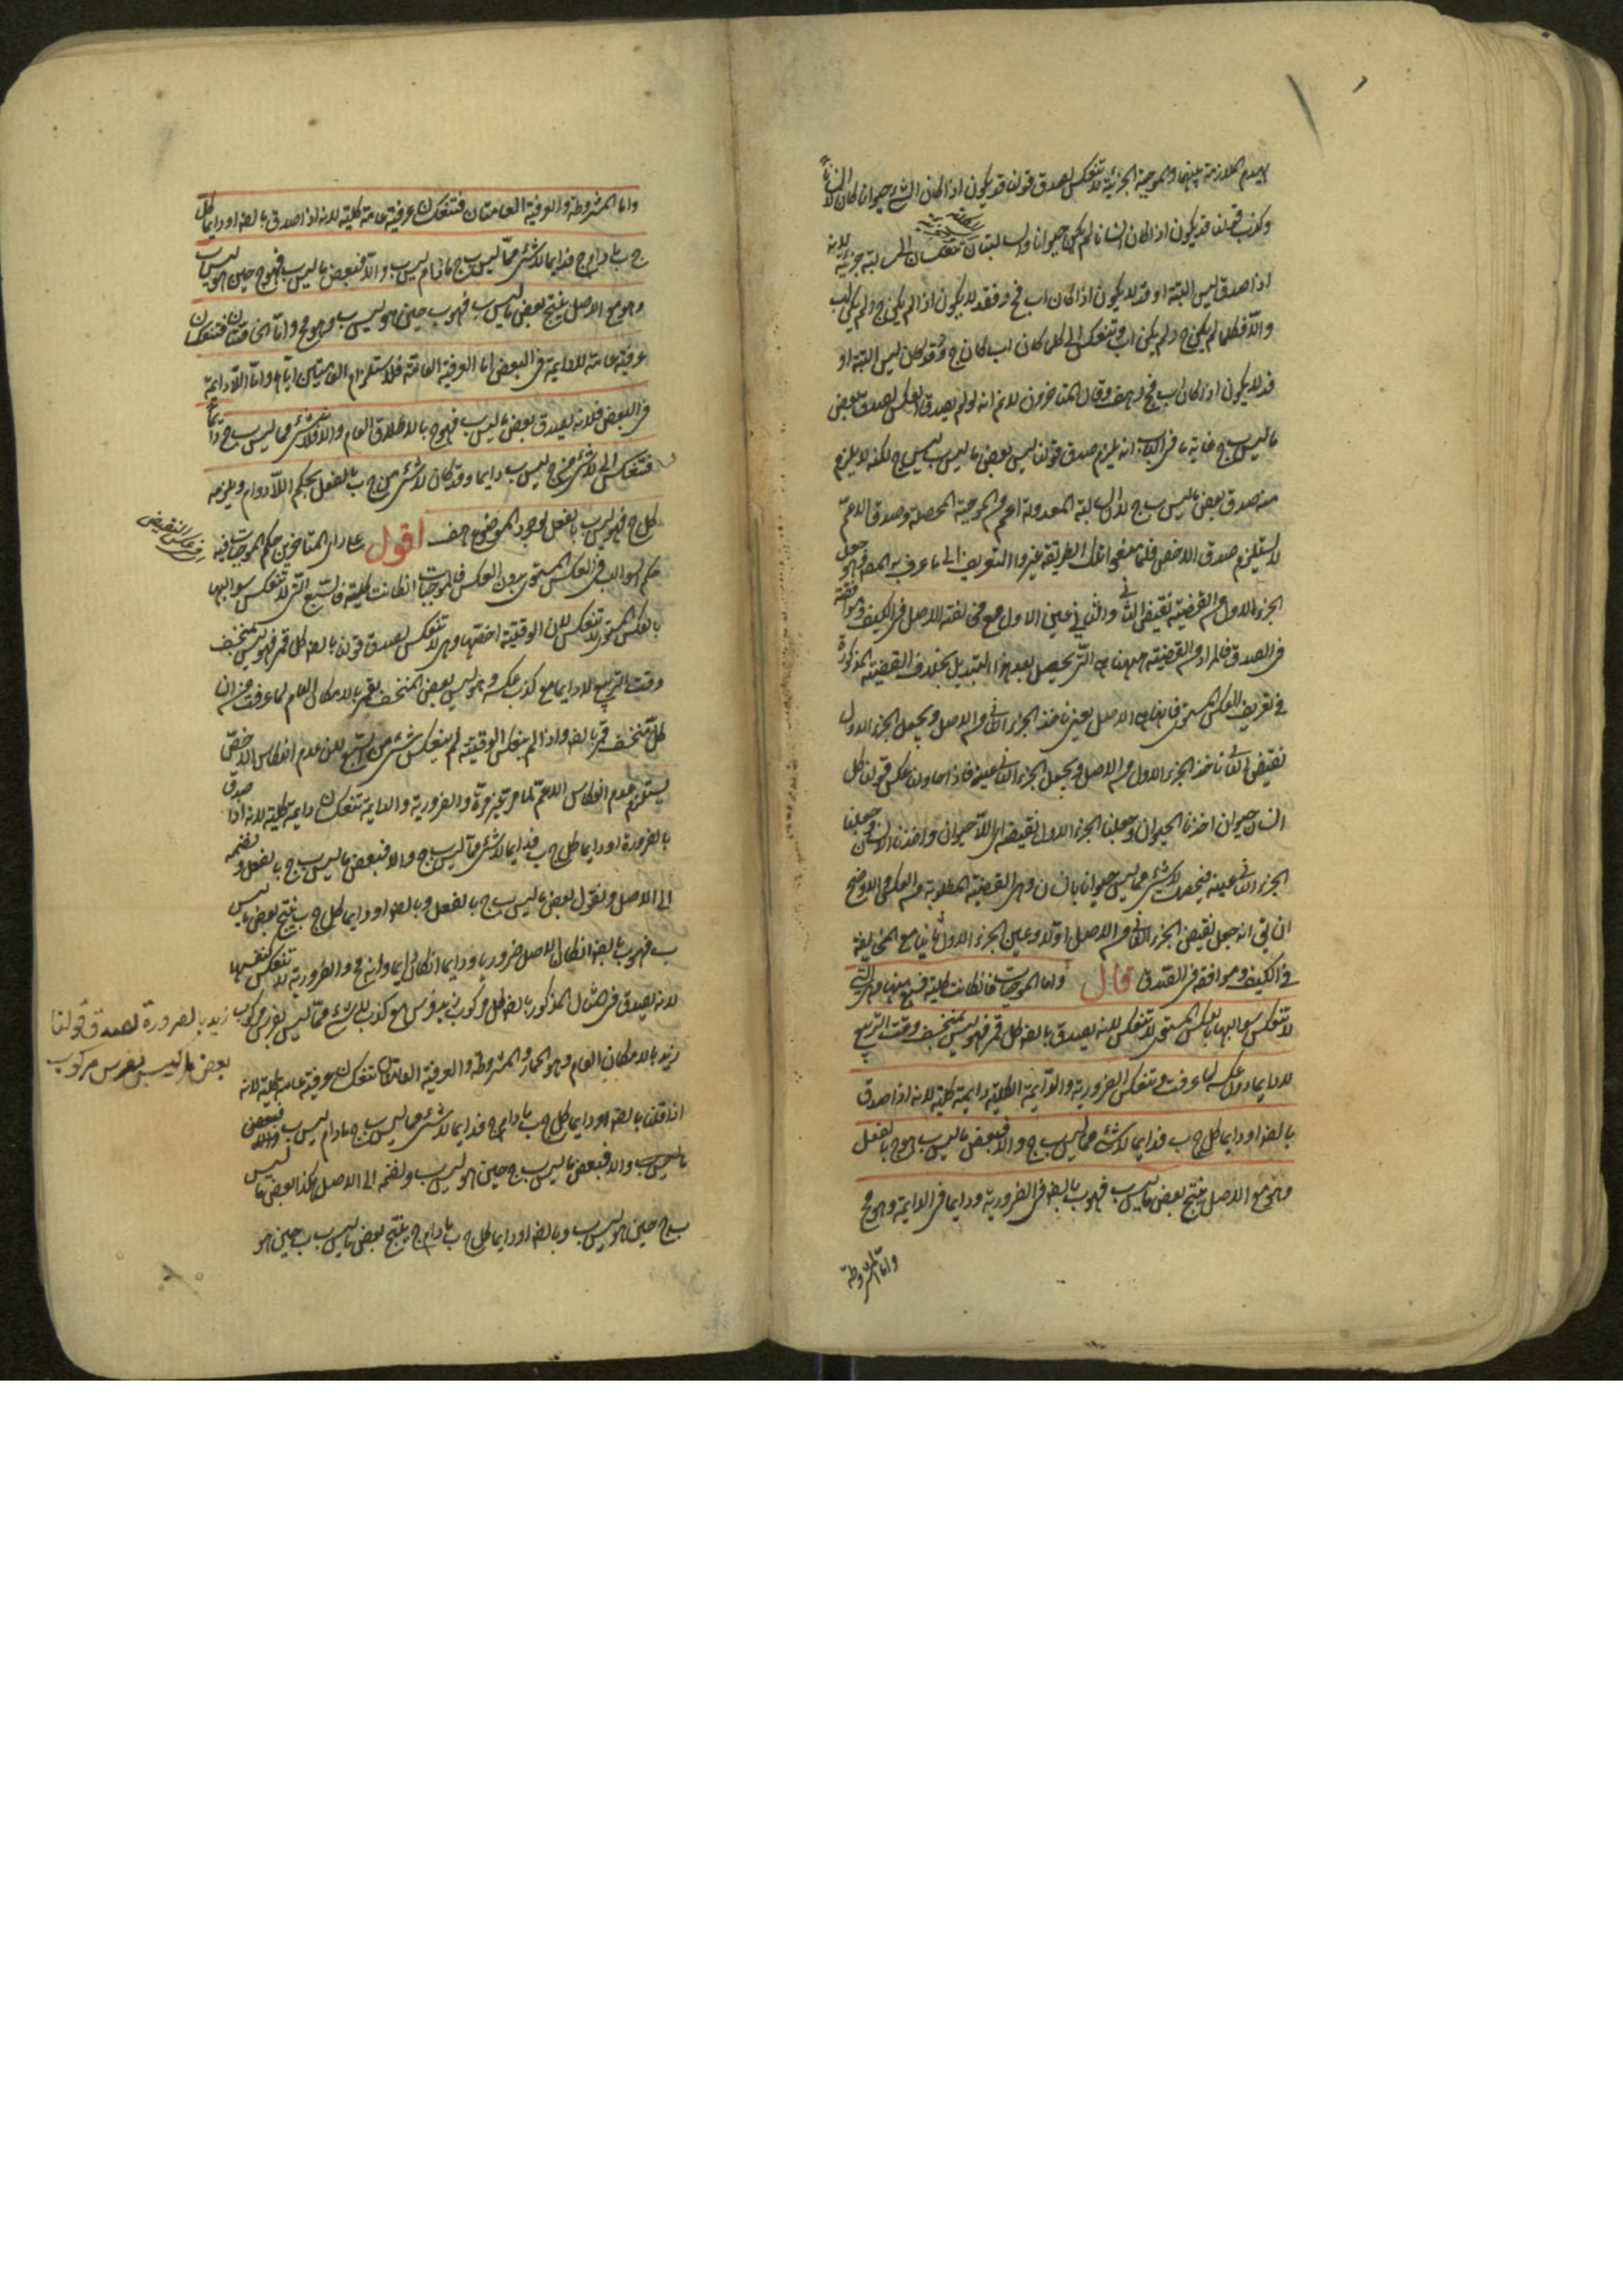 لعدم الملازمة بينهما والموجبة الجزئية لا تنعكس لصدق قولنا قد يكون اذا كان الشئ حيوانا كان لا انسانا
وكذب قولنا قد يكون اذا كان انسانا لم يكن حيوانا والسالبتان تنعكسان الى سالبة جزئية لانه
اذا صدق ليس البتة او قد لا يكون اذا كان اب فج د فقد لا يكون اذا لم يكن ج د لم يكن اب
والا فكلما لم يكن ج د لم يكن اب وتنعكس الى كلما كان اب كان ج د وقد كان ليس البتة او
قد لا يكون اذا كان اب فج د هف وقال المتاخرون لا نم انه لو لم يصدق العكس لصدق بعض
ما ليس ب ج غاية ما فى الباب انه يلزم صدق قولنا ليس بعض ما ليس ب ليس ج لكنه لا يلزم
منه صدق بعض ما ليس ب ج لان السالبة المعدولة اعم من الموجبة المحصلة وصدق الاعم
لا يستلزم صدق الاخص فلما منعوا تلك الطريقة غيروا التعريف الى ما عرف به المص فهو جعل
الجزء الاول من القضية نقيض الثانى والثانى عين الاول مع مخالفة الاصل فى الكيف وموافقته
فى الصدق فالمراد من القضية ههنا هى التى يحصل بعد هذا التبديل بخلاف القضية المذكورة
فى تعريف العكس المستوى فانها هى الاصل يعنى ناخذ الجزء الثانى من الاصل ويجعل الجزء الاول
نقيض الثانى ناخذ الجزء الاول من الاصل ويجعل الجزء الثانى عينه فاذا حاولنا عكس قولنا كل
انسان حيوان اخذنا الحيوان وجعلنا الجزء الاول نقيضه اى اللاحيوان واخذنا الانسان وجعلنا
الجزء الثانى عينه فيحصل لا شئ مما ليس حيوانا بانسان وهى القضية المطلوبة من العكس والاوضح
ان يق انه جعل نقيض الجزء الثانى من الاصل اولا وعين الجزء الاول ثانيا مع المخالفة
فى الكيف وموافقة فى الصدق قال واما الموجبات فان كانت كلية فسبع منها وهى التى
لا تنعكس سوالبها بالعكس المستوى لا تنعكس لانه يصدق بالضه كل قمر فهو ليس بمنخسف وقت التربيع
لا دايما دون عكسه لما عرفت وتنعكس الضرورية والدائمة الكلية دايمة كلية لانه اذا صدق
بالضه او دايما كل ج ب فدايما لا شئ مما ليس ب ج والا فبعض ما ليس ب هو ج بالفعل
وهو مع الاصل ينتج بعض ما ليس ب فهو ب بالضه فى الضرورية ودايما فى الدايمة وهو مح
واما المشروطة
واما المشروطة والعرفية العامتان فتنعكسان عرفية عامة كلية لانه اذا صدق بالضه او دايما كل
ج ب ما دام ج فدايما لا شئ مما ليس ب ج ما دام ليس ب والا فبعض ما ليس ب فهو ج حين هو ليس ب
وهو مع الاصل ينتج بعض ما ليس ب فهو ب حين هو ليس ب وهو مح واما الخاصتان فتنعكسان
عرفية عامة لا دايمة فى البعض اما العرفية العامة فلاستلزام العامتين اياها واما اللادايمة
فى البعض فلانه يصدق بعض ما ليس ب فهو ج بالاطلاق العام والا فلا شئ مما ليس ب ج دائما
فتنعكس الى لا شئ من ج ليس ب دايما وقد كان لا شئ من ج ب بالفعل بحكم اللا دوام ويلزمه
كل ج فهو ليس ب بالفعل لوجود الموضوع هف اقول على راى المتاخرين حكم الموجبات فيه
فى عكس النقيض
حكم السوالب فى العكس المستوى بدون العكس فالموجبات ان كانت كلية فالسبع التى لا تنعكس سوالبها
بالعكس المستوى لا تنعكس لان الوقتية اخصها وهى لا تنعكس لصدق قولنا بالضه كل قمر فهو ليس بمنخسف
وقت التربيع لا دايما مع كذب عكسه وهو ليس بعض المنخسف بقمر بالامكان العام لما عرفت من ان
كل منخسف قمر بالضه واذا لم ينعكس الوقتية لم ينعكس شئ من السبع لان عدم انعكاس الاخص
يستلزم عدم انعكاس الاعم لما مر غير مرة والضرورية والدايمة تنعكسان دايمة كلية لانه اذا صدق
بالضرورة او دايما كل ج ب فدايما لا شئ مما ليس ب ج والا فبعض ما ليس ب ج بالفعل ونضمه
الى الاصل ونقول بعض ما ليس ب ج بالفعل وبالضه او دايما كل ج ب ينتج بعض ما ليس
ب فهو ب بالضه ان كان الاصل ضروريا ودايما ان كان دايما وانه مح والضرورية لا تنعكس كنفسها
لانه يصدق فى المثال المذكور بالضه كل مركوب زيد فرس مع كذب لا شئ مما ليس بفرس مركوب
زيد بالضرورة لصدق قولنا
بعض ما ليس بفرس مركوب
زيد بالامكان العام وهو الحمار والمشروطة والعرفية العامتان تنعكسان عرفية عامة كلية لانه
اذا قلنا بالضه او دايما كل ج ب ما دام ج فدايما لا شئ مما ليس ب ج ما دام ليس ب والا فبعض
ما ليس ب والا فبعض ما ليس ب ج حين هو ليس ب ونضمه الى الاصل هكذا بعض ما ليس
ب ج حين هو ليس ب وبالضه او دايما كل ج ب ما دام ج ينتج بعض ما ليس ب ب حين هو